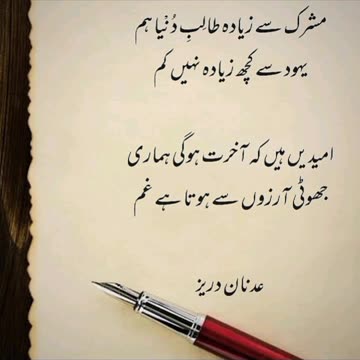 مشرک سے زیادہ طالبِ دُنْیا ہم
یہود سے کچھ زیادہ نہیں کم
امیدیں ہیں کہ آخرت ہوگی ہماری
جھوٹی آرزوں سے ہوتا ہے غم
عدنان دریز